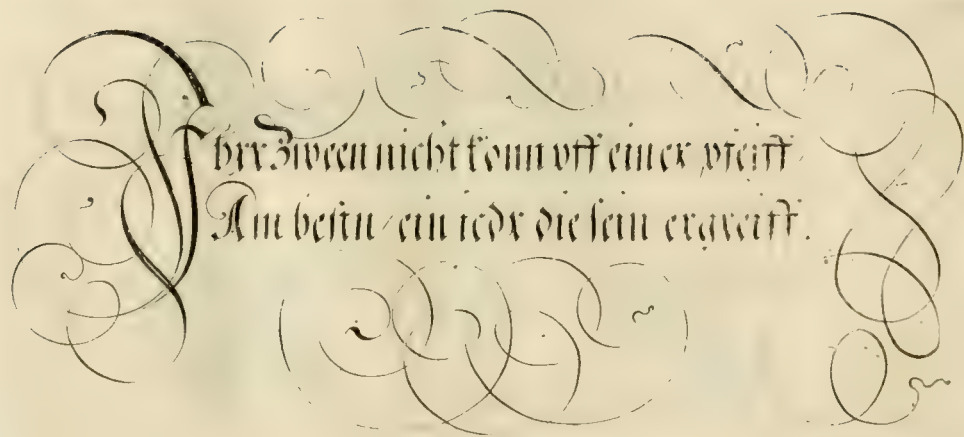 Ihrr Zween nicht konn vff einer pfeiff
Am bestn / ein iedr die sein ergreiff.